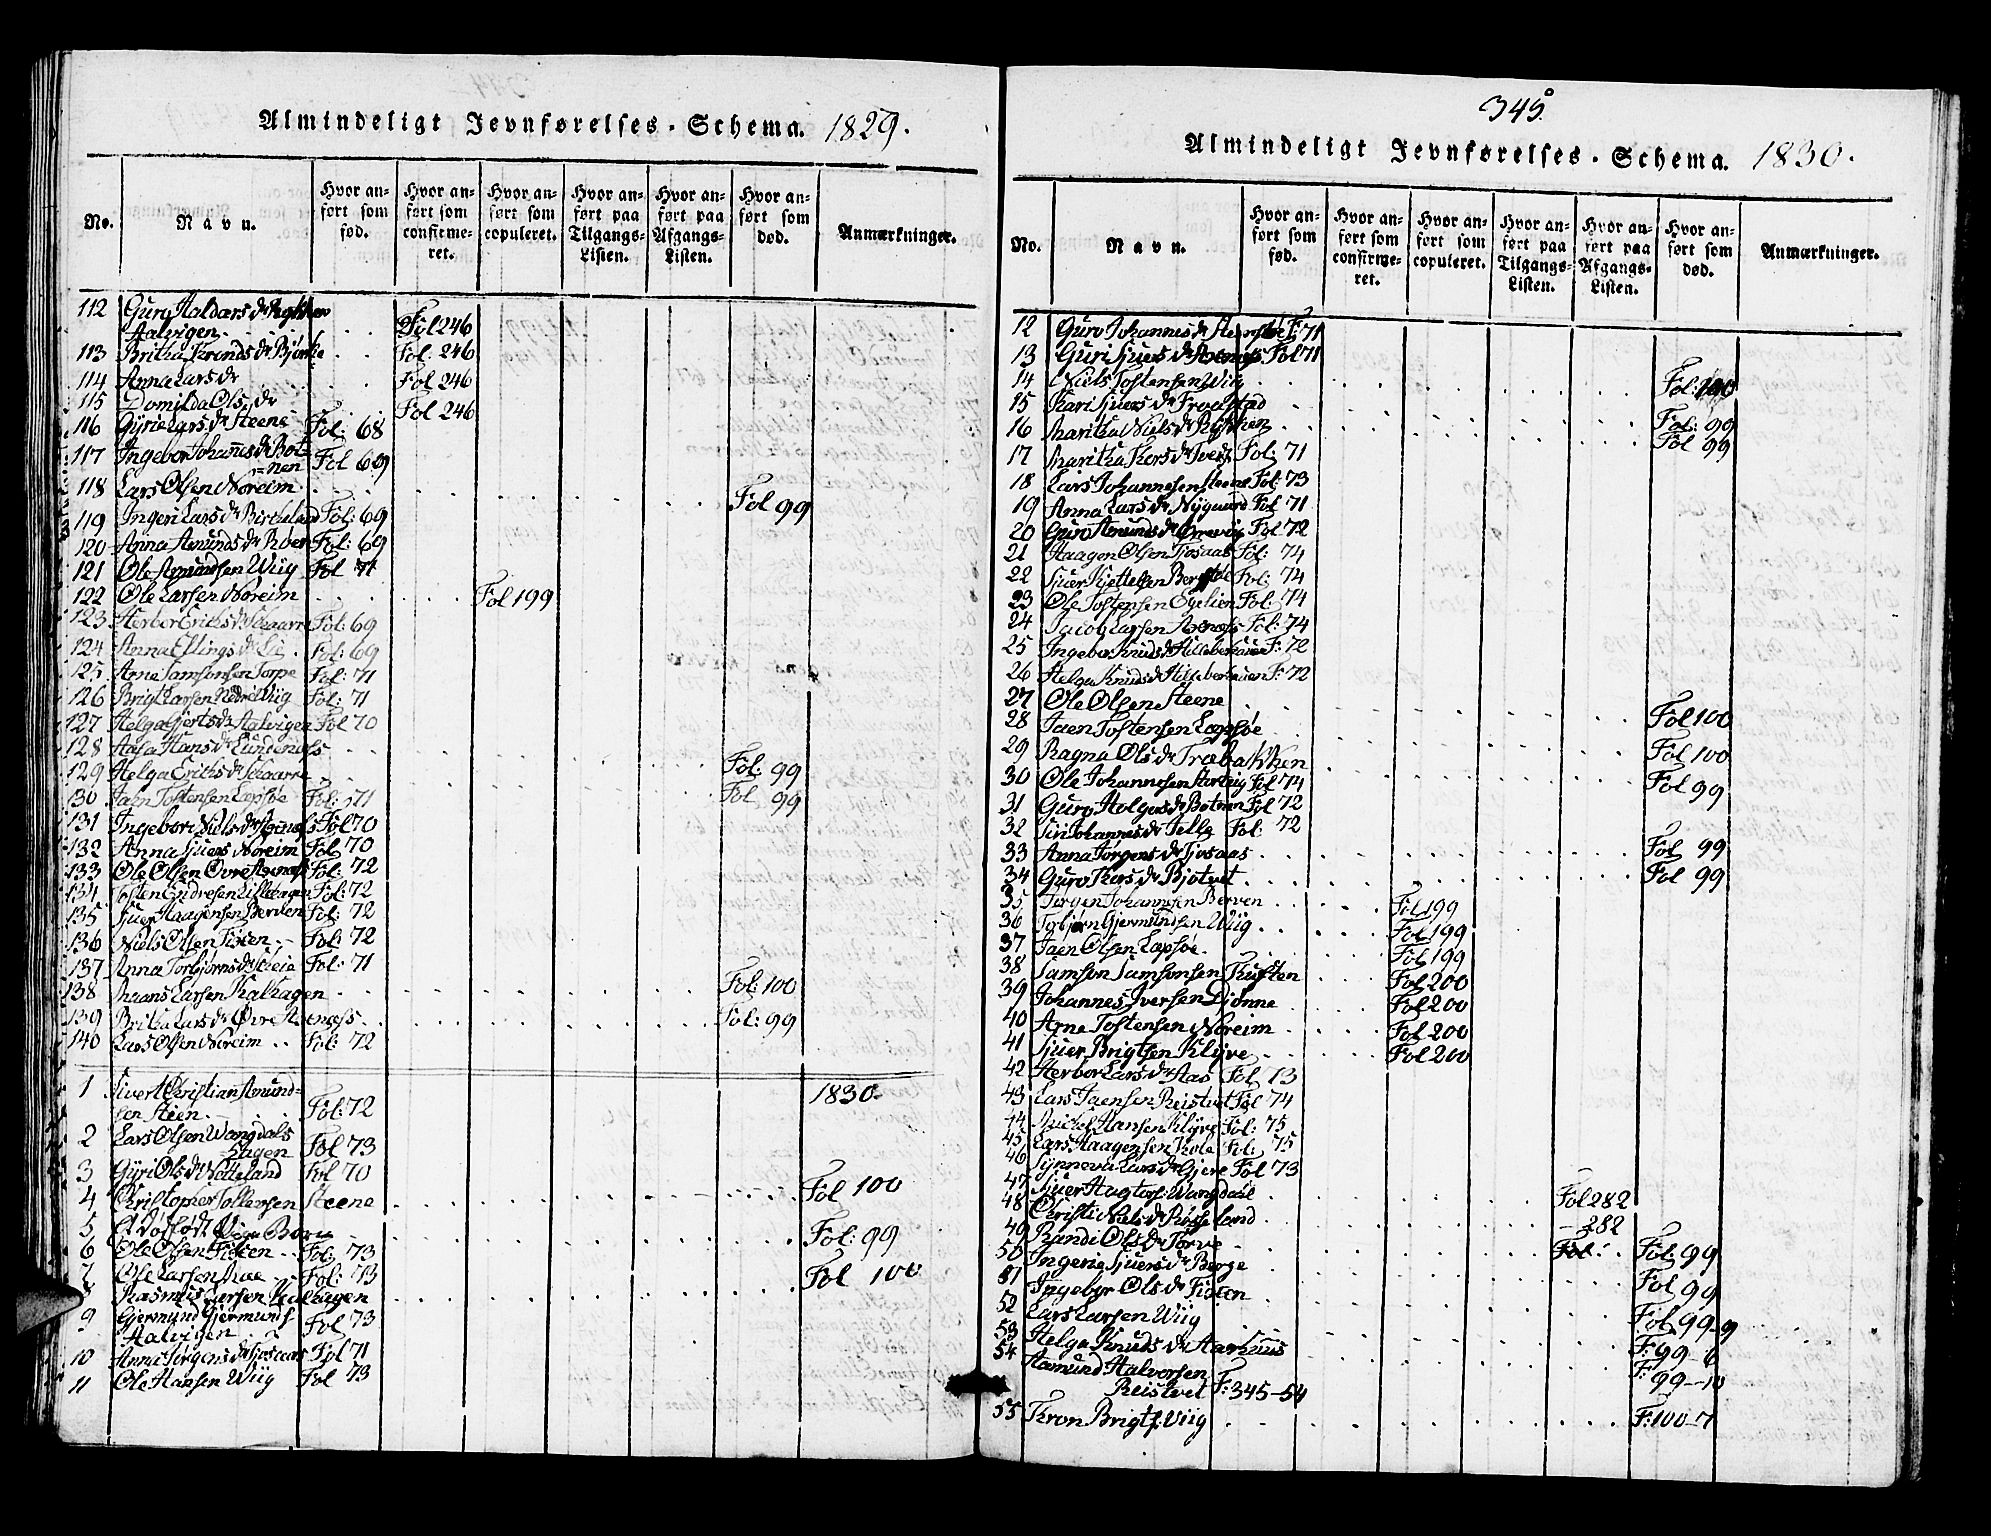 Almindeligt Jevnførelses-Schema. 1829.
No. Navn. Hvor anført som fød. Hvor anført som confirmeret. Hvor anført som copuleret. Hvor anført paa Tilgangs-Listen. Hvor anført paa Afgangs-Listen. Hvor anført som død. Anmærkninger.
112 Guro Haldors dr
Aalvigen Fol 246
113 Britha Tronds dr Bjørke Fol. 246
114 Anna Lars dr Fol 246
115 Domilda Ols dr Fol 246
116 Gyrie Lars dr Steene Fol: 68
117 Ingebor Johannes dr Bot-
nen Fol 69
118 Lars Olsen Noreim Fol 99
119 Ingeri Lars dr Birkeland Fol: 69
120 Anna Amunds dr Fol: 69
121 Ole Amundsen Wiig Fol 71
122 Ole Larsen Noreim Fol 199
123 Herbor Eriks dr Skaarre Fol: 69
124 Anna Ellings dr Lie Fol: 69
125 Arne Samsonsen Torpe Fol: 71
126 Brigt Larsen Nedre Wiig Fol: 71
127 Helga Gjerts dr Aalvigen Fol 70
128 Aasa Hans dr Lundenæss Fol: 99
129 Helga Eriks dr Skaarre Fol 99
130 Jaen Tostensen Lapsøe Fol: 71
131 Ingebor Niels dr Fol 70
132 Anna Sjurs Noreim Fol 70
133 Ole Olsen Øvre Fol: 72
134 Tosten Endresen Fol: 72
135 Sjur Haagensen Berven Fol: 72
136 Niels Olsen Fixen Fol: 72
137 Anna Torbjørns dr Fol: 71
138 Maans Larsen Kalhagen Fol: 100
139 Britha Lars dr Øvre Fol: 99
140 Lars Olsen Noreim Fol: 72
1830.
1 Sivert Christian Amund-
sen Steen Fol: 72
2 Lars Olsen Wangdals
Hagen Fol 73
3 Gyri Ols dr Fol 70
4 Christopher Tollevsen Steene Fol 100
5 Et Dødfødt Barn Fol: 99
6 Ole Olsen Fixen Fol: 73
7 Ole Larsen Fol: 73
8 Rasmus Larsen Kalhagen Fol 100
9 Gjermund Gjermunds
Aalvigen Fol 73
10 Anna Jørgens dr Fol 71
11 Ole Hansen Wiig Fol 73
345.
Almindeligt Jevnførelses-Schema. 1830.
No. Navn. Hvor anført som fød. Hvor anført som confirmeret. Hvor anført som copuleret. Hvor anført paa Tilgangs-Listen. Hvor anført paa Afgangs-Listen. Hvor anført som død. Anmærkninger.
12 Guro Johannes dr F: 71
13 Guri Sjurs dr Fol 71
14 Niels Tostensen Wiig Fol: 100
15 Kari Sjurs dr Froestad Fol: 99
16 Maritha Niels dr Rykken Fol 99
17 Maritha Thors dr Fol: 71
18 Lars Johannesen Steene Fol: 73
19 Anna Lars dr Nygaard Fol 71
20 Guro Amunds dr Fol 72
21 Haagen Olsen Tjosaas Fol: 74
22 Sjur Kjettelsen Fol: 74
23 Ole Tostensen Egelien Fol: 74
24 Jacob Larsen Fol: 74
25 Ingebor Knuds dr F: 72
26 Helga Knuds dr F: 72
27 Ole Olsen Steene Fol 100
28 Jaen Tostensen Lapsøe Fol 100
29 Ragna Ols dr Træbakken Fol 99
30 Ole Johannesen Fol 74
31 Guro Holgers dr Botnen Fol 72
32 Siri Johannes dr Telle Fol: 72
33 Anna Jørgens dr Tjosaas Fol 99
34 Guro Thors dr Bjotvet Fol 99
35 Jørgen Johannesen Berven Fol 199
36 Torbjørn Gjermundsen Wiig Fol 199
37 Jaen Olsen Lapsøe Fol 199
38 Samson Samsonsen Fol 200
39 Johannes Iversen Djønne Fol 200
40 Arne Tostensen Noreim Fol 200
41 Sjur Brigtsen Klyve Fol 200
42 Herbor Lars dr Aas Fol 73
43 Lars Jaensen Reistvet Fol 74
44 Mickel Hansen Klyve Fol: 75
45 Lars Haagensen Fol: 75
46 Synneva Lars dr Gjere Fol 73
47 Sjur Wangdahl Fol 282
48 Christi Niels dr – 282
49 Randi Ols dr Torve Fol. Fol: 99
50 Ingerie Sjurs dr Berge Fol 99
51 Ingebor Ols dr Fixen Fol. 99-9
52 Lars Larsen Wiig F: 99-6
53 Helga Knuds dr Aarhuus F: 99-10
54 Aamund Halvorsen
Reistvet F: 345-54
55 Tron Brigts. Wiig F: 100-7